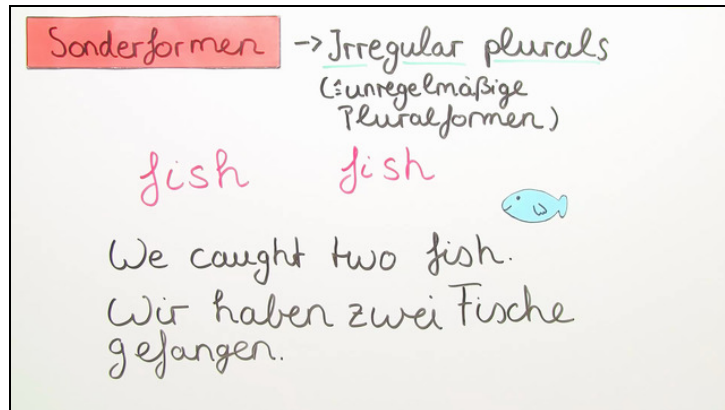 Sonderformen -> Irregular plurals
(≙ unregelmäßige
Pluralformen)
fish fish
We caught two fish.
Wir haben zwei Fische
gefangen.